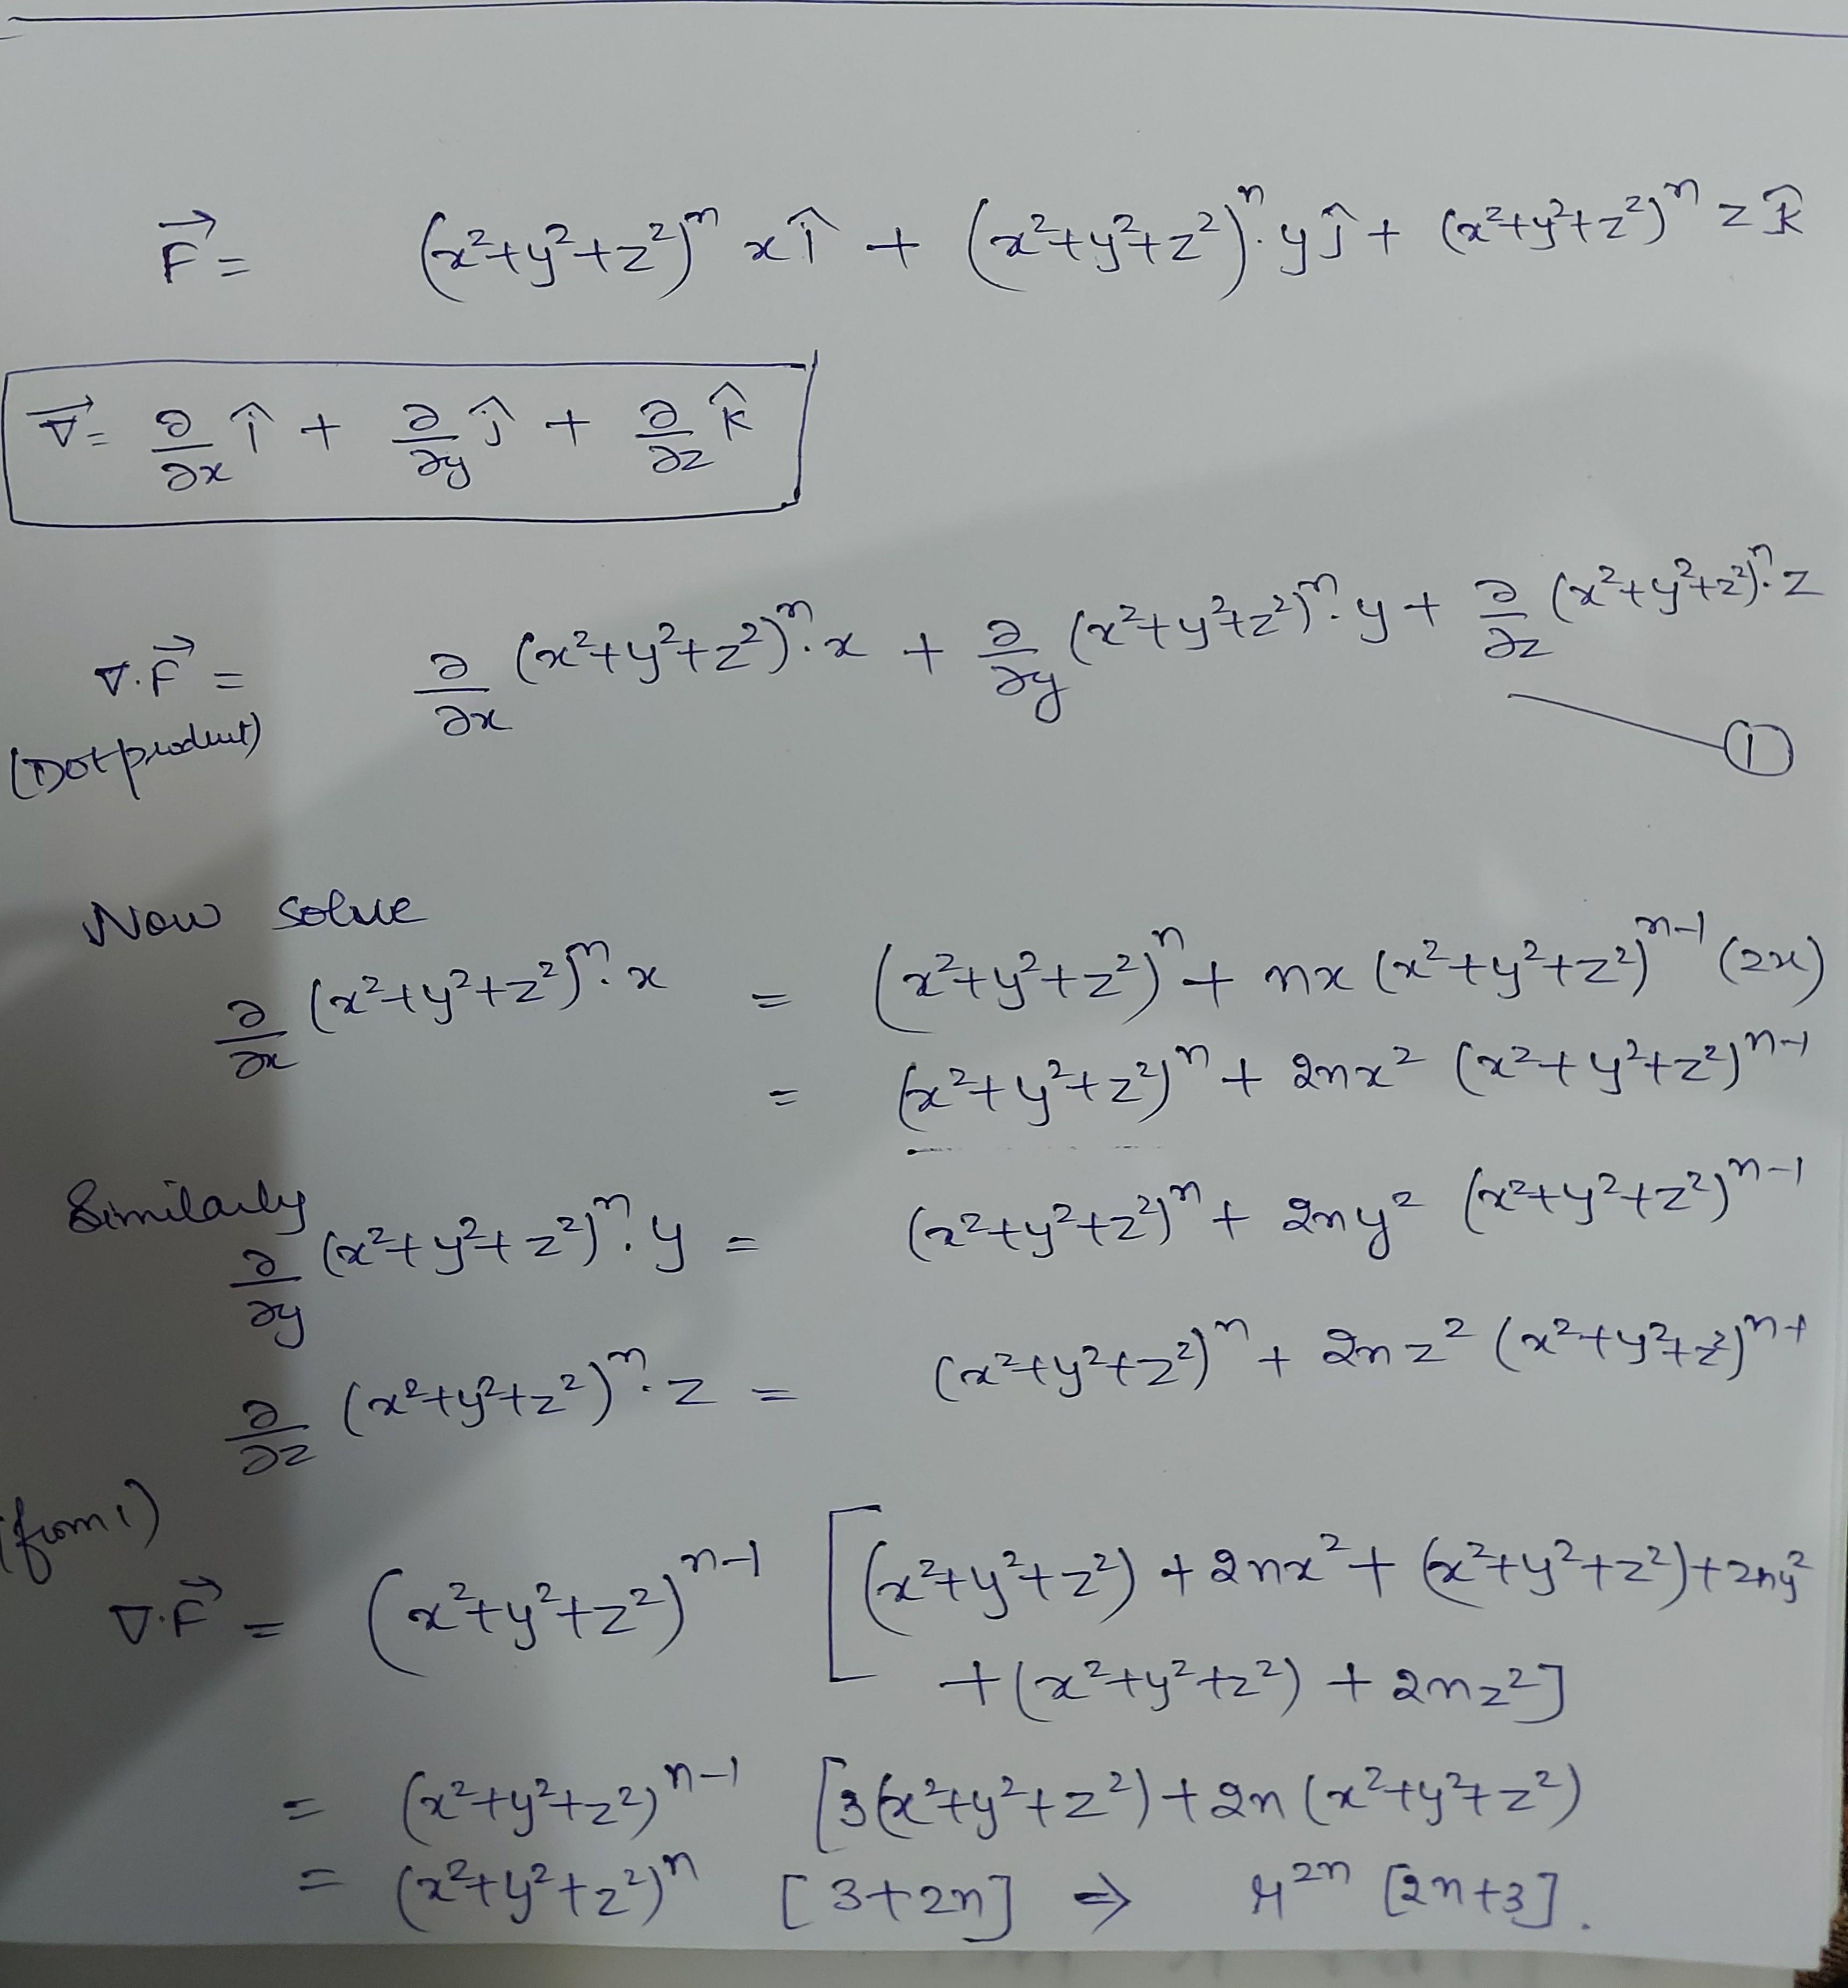 F⃗ = (x²+y²+z²)ⁿ x î + (x²+y²+z²)ⁿ. y ĵ + (x²+y²+z²)ⁿ z k̂
∇⃗ = ∂/∂x î + ∂/∂y ĵ + ∂/∂z k̂
∇.F⃗ = ∂/∂x (x²+y²+z²)ⁿ. x + ∂/∂y (x²+y²+z²)ⁿ. y + ∂/∂z (x²+y²+z²)ⁿ. z
(Dot product) ①
Now solve
∂/∂x (x²+y²+z²)ⁿ. x = (x²+y²+z²)ⁿ + nx (x²+y²+z²)ⁿ⁻¹ (2x)
= (x²+y²+z²)ⁿ + 2nx² (x²+y²+z²)ⁿ⁻¹
Similarly
∂/∂y (x²+y²+z²)ⁿ. y = (x²+y²+z²)ⁿ + 2ny² (x²+y²+z²)ⁿ⁻¹
∂/∂z (x²+y²+z²)ⁿ. z = (x²+y²+z²)ⁿ + 2nz² (x²+y²+z²)ⁿ⁻¹
(from 1)
∇.F⃗ = (x²+y²+z²)ⁿ⁻¹ [(x²+y²+z²) + 2nx² + (x²+y²+z²) + 2ny²
+ (x²+y²+z²) + 2nz²]
= (x²+y²+z²)ⁿ⁻¹ [3(x²+y²+z²) + 2n (x²+y²+z²)
= (x²+y²+z²)ⁿ [3+2n] ⇒ r²ⁿ [2n+3].